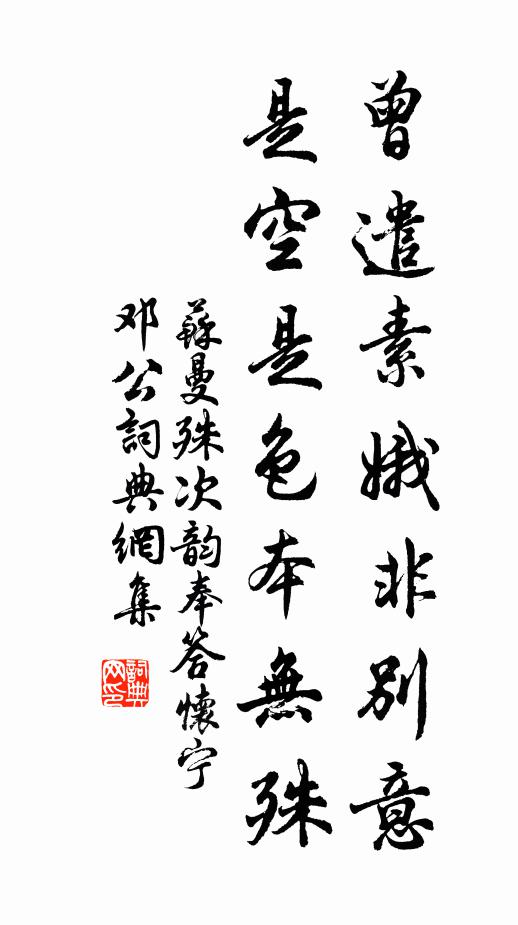 曾遣素娥非别意
是空是色本無殊
蘇曼殊次韵奉答懷宁
邓公詞典網集
詞典网印